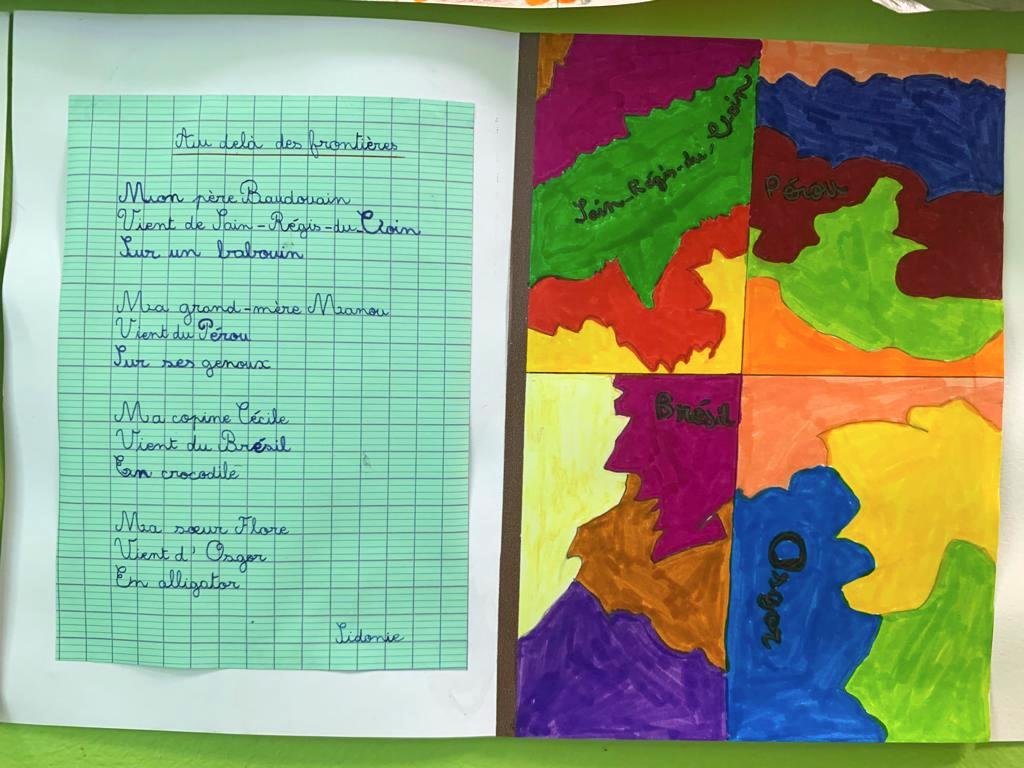 Au delà des frontières
Mon père Baudouain
Vient de Sain-Régis-du-Cloin
Sur un babouin
Ma grand-mère Manou
Vient du Pérou
Sur ses genoux
Ma copine Cécile
Vient du Brésil
En crocodile
Ma sœur Flore
Vient d'Osgor
En alligator
Sidonie
Sain-Régis-du-Cloin
Pérou
Brésil
Osgor